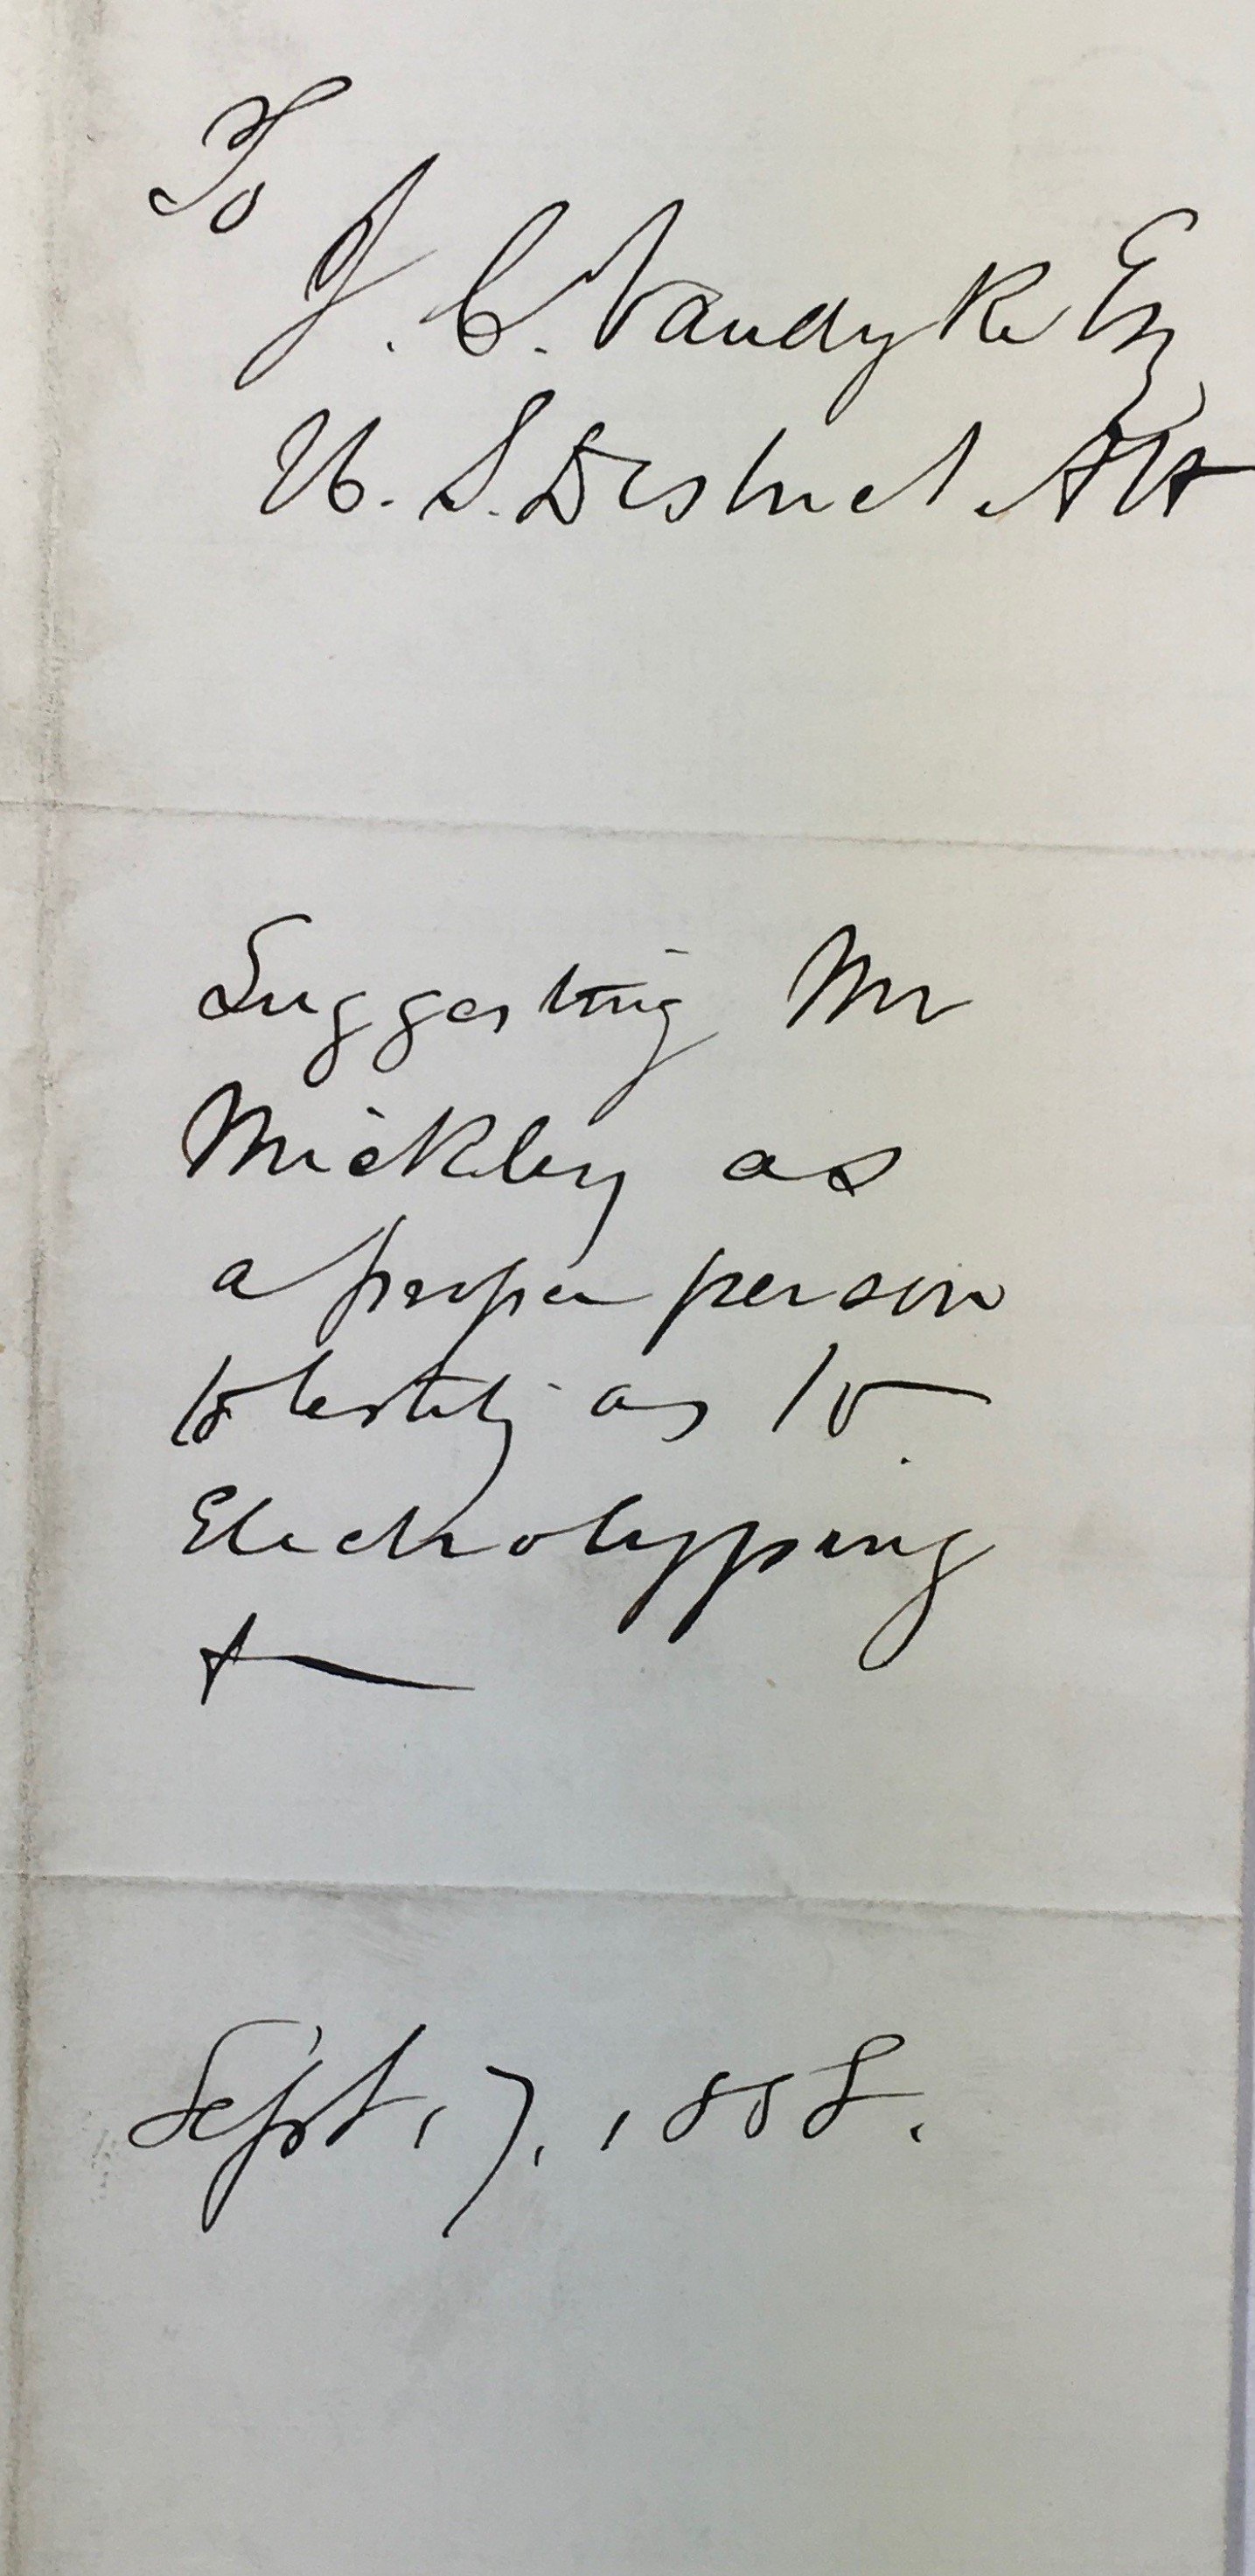 To
J. C. Vandyke Esq
U. S. District Att
Suggesting Mr
Mickley as
a proper person
to testify as to
Electrotypping
&
Sept. 7. 1858.